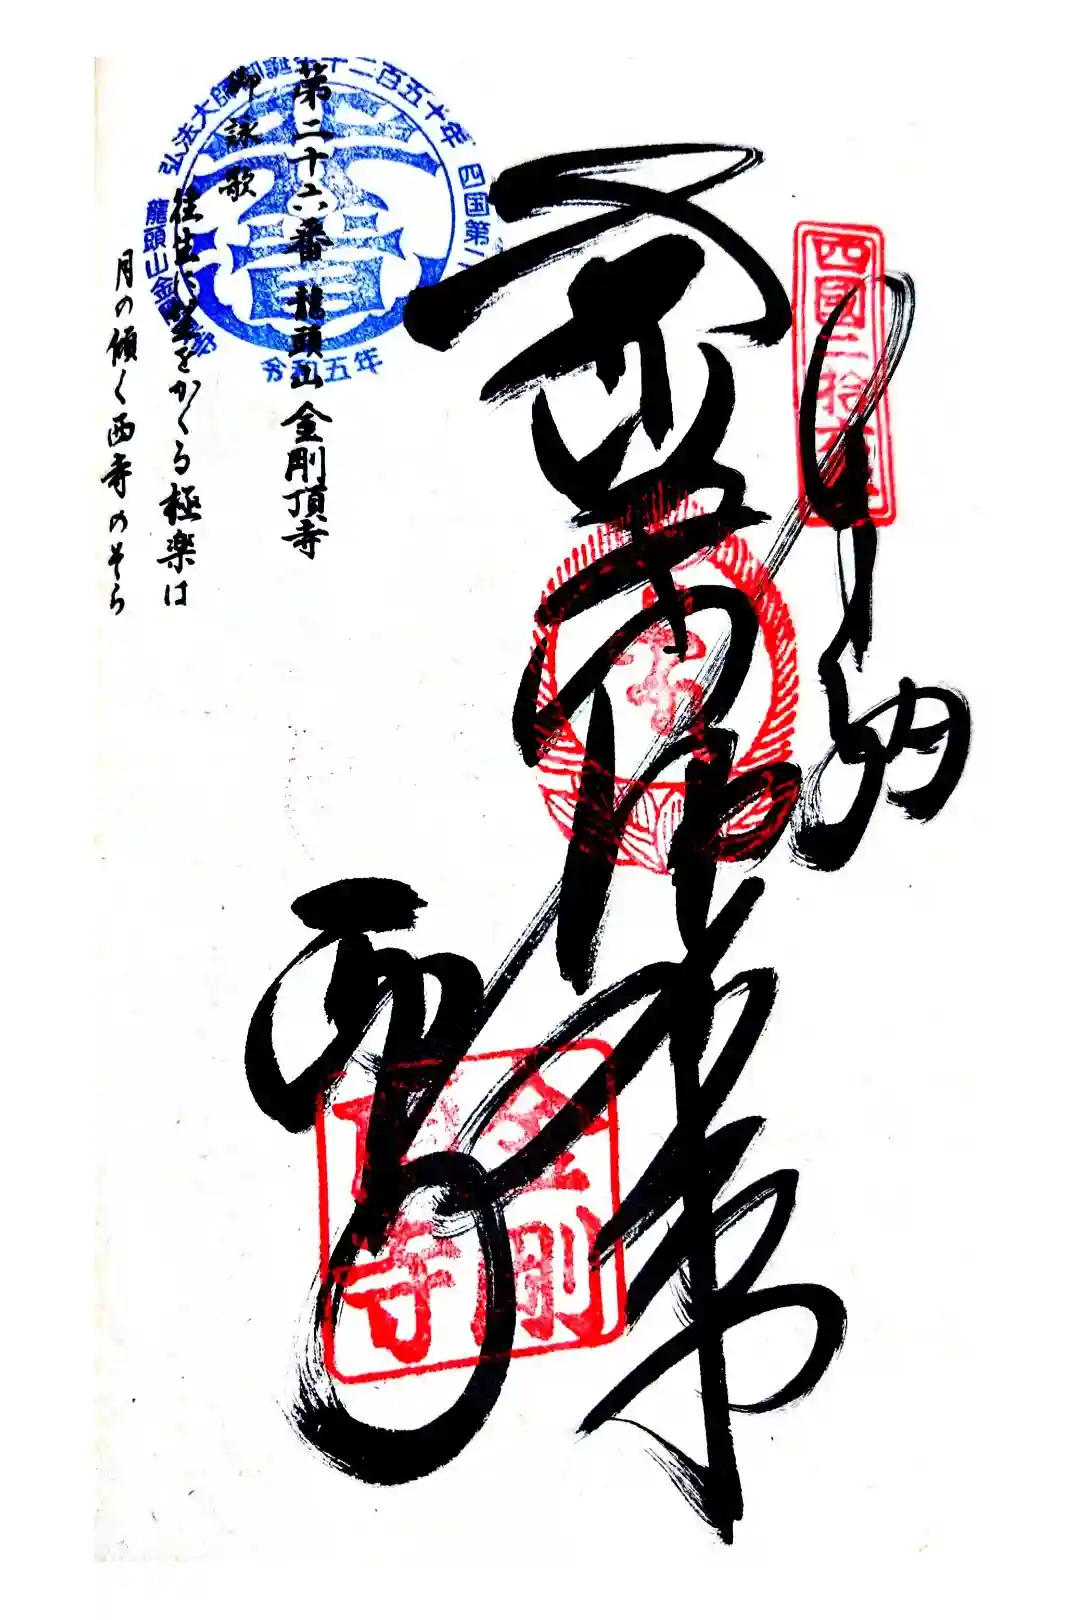 四國二拾六番
奉納
薬師如来
西寺
金剛
頂寺
第二十六番 龍頭山 金剛頂寺
御詠歌
往生に望をかくる極楽は
月の傾く西寺のそら
弘法大師御誕生千二百五十年
四国第二
龍頭山金
令和五年